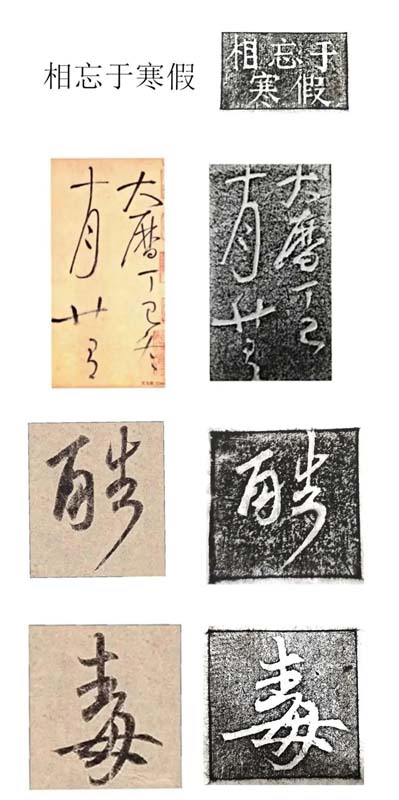 相忘于寒假
相忘于
寒假
大曆丁巳冬
十月廿
大曆丁巳
十月廿
酷
酷
毒
毒